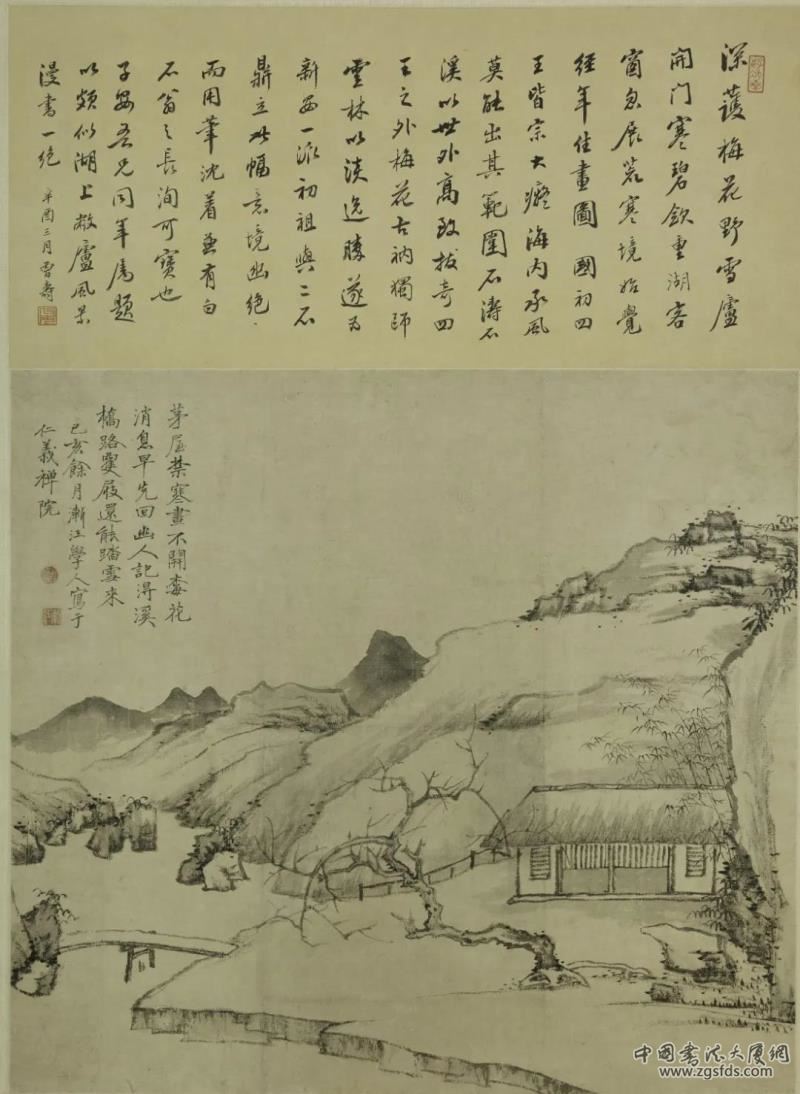 深護梅花野雪廬
開門寒碧歛重湖客
窗忽展荒寒境始覺
經年佳畫圖 國初四
王皆宗大癡海內承風
莫能出其範圍石濤石
溪以世外高致拔奇四
王之外梅花古衲獨師
雲林以淡逸勝遂為
新安一派初祖與二石
鼎立此幅意境幽絕
而用筆沈着兼有白
石翁之長洵可寶也
子安吾兄同年屬題
以頗似湖上敝廬風景
漫書一絕 辛酉三月曾壽
茅屋禁寒晝不開毒花
消息早先回幽人記得溪
橋路蠟屐還能踏雪來
己亥餘月漸江學人寫于
仁義禪院
中國書法大廈網
www.zgsfds.com